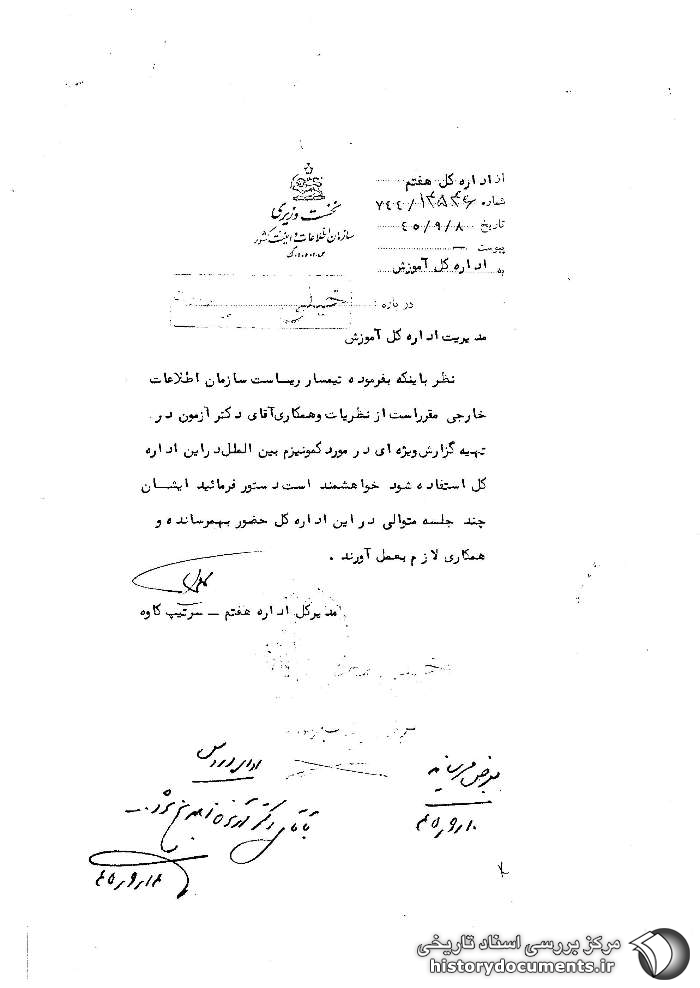 از اداره کل هفتم
شماره ۷۴۴/۱۳۵۳۶
تاریخ ۴۵/۹/۸
پیوست —
به اداره کل آموزش
نخست وزیری
سازمان اطلاعات و امنیت کشور
س.ا.و.ا.ک
درباره :
مدیریت اداره کل آموزش
نظر باینکه بفرموده تیمسار ریاست سازمان اطلاعات
خارجی مقرراست از نظریات وهمکاری‌آقای دکتر آزمون در
تهیه گزارش‌ویژه ای در مورد کمونیزم بین الملل‌در این اداره
کل استفاده شود خواهشمند است دستور فرمائید ایشان
چند جلسه متوالی در این اداره کل حضور بهمرسانده و
همکاری لازم بعمل آورند .
مدیرکل اداره هفتم – سرتیپ کاوه
بعرض میرساند
۴۵/۹/۱۰
اداره دروس
بآقای دکتر آزمون ابلاغ شود
مرکز بررسی اسناد تاریخی
historydocuments.ir